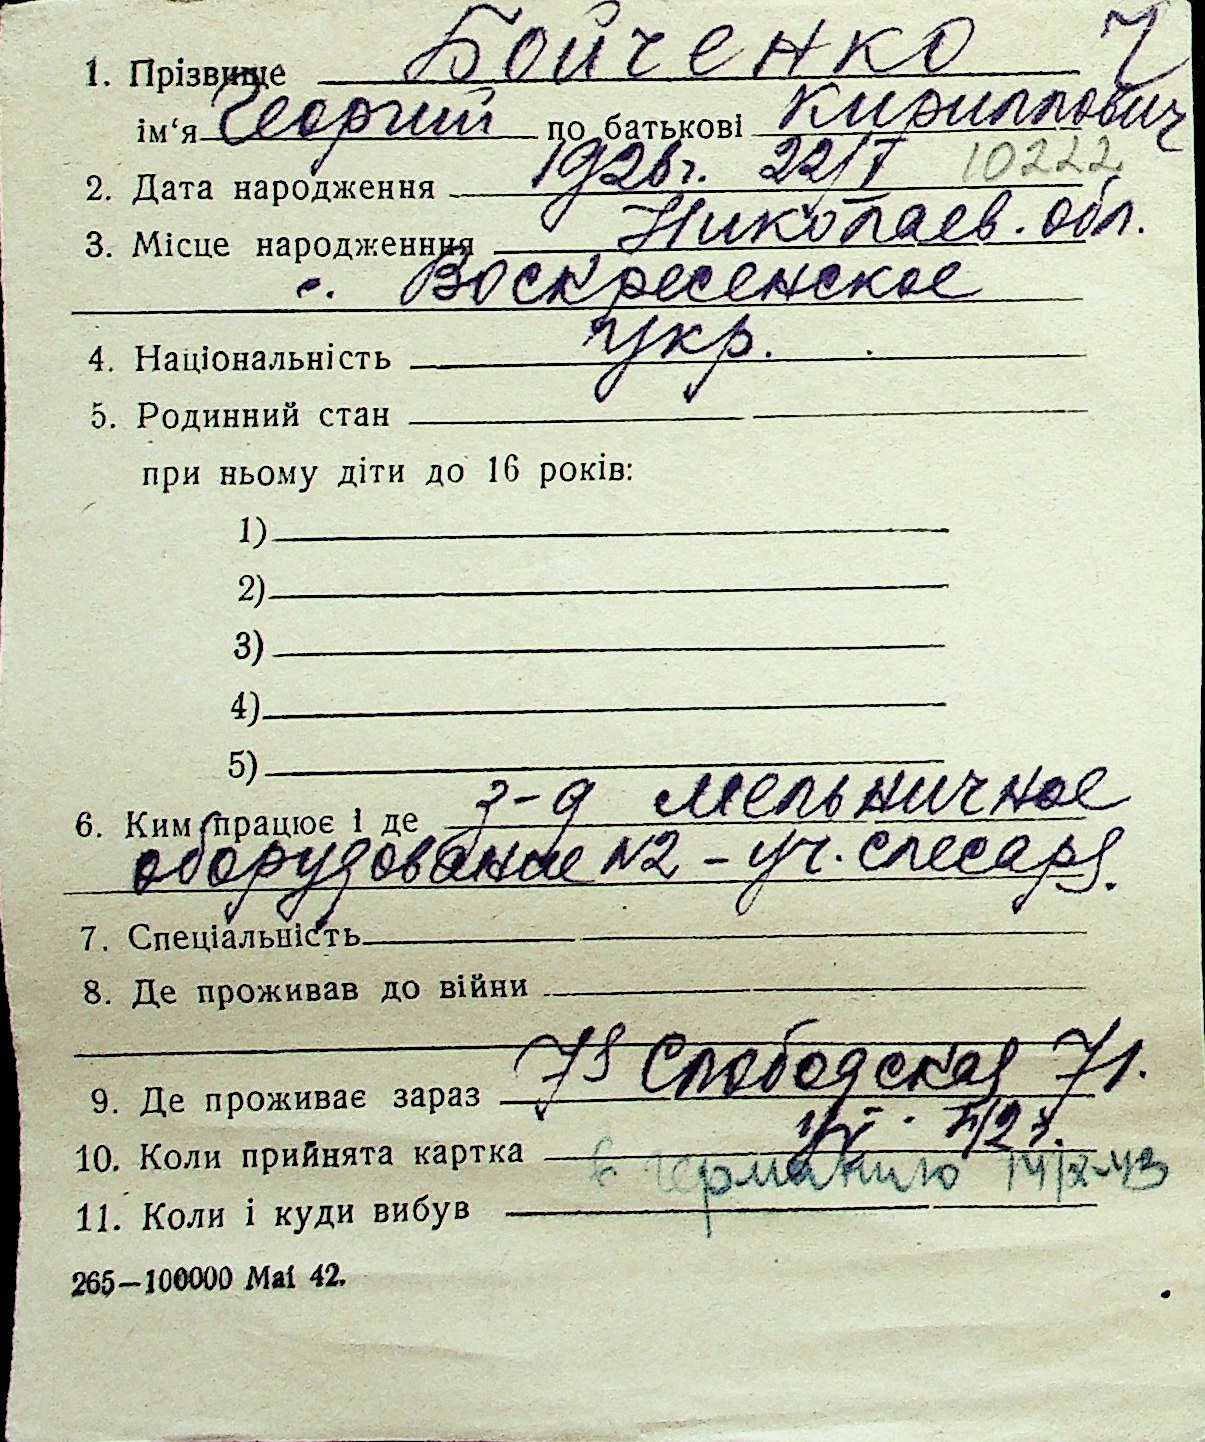 1. Прізвище Бойченко 7
ім‘я Георгий по батькові Кириллович
2. Дата народження 1926г. 22/I 10222
3. Місце народженння Николаев. обл.
с. Воскресенское
4. Національність Укр.
5. Родинний стан
при ньому діти до 16 років:
1)
2)
3)
4)
5)
6. Ким працює і де з-д Мельничное
оборудование N2 - уч. слесаря.
7. Спеціальність
8. Де проживав до війни
9. Де проживає зараз 7я Слободская 71.
10. Коли прийнята картка
в Германию
11. Коли і куди вибув
265—100000 Mai 42.